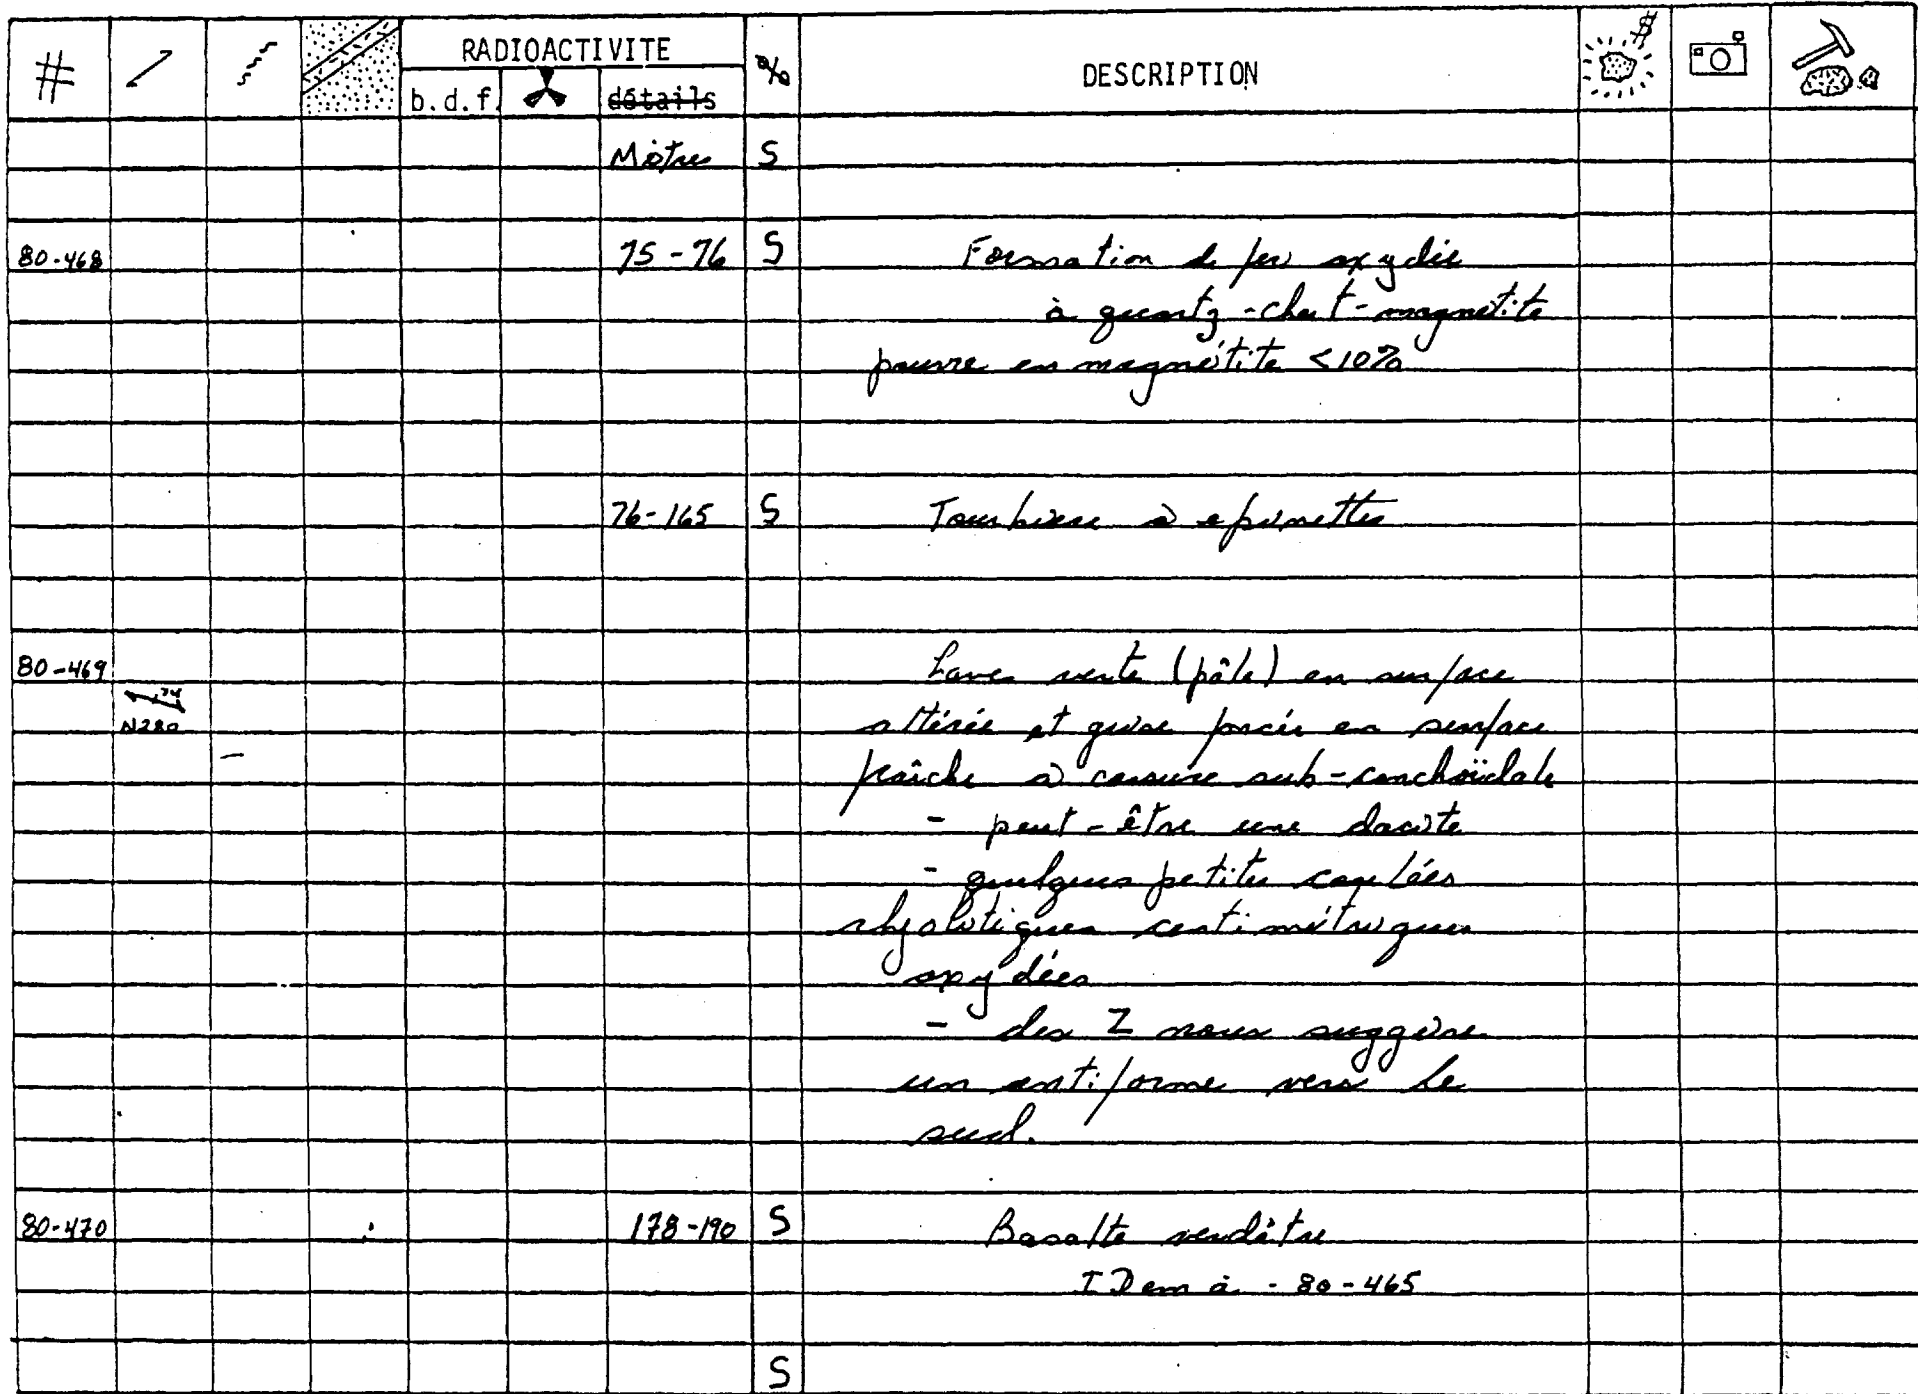 # RADIOACTIVITE % DESCRIPTION $
b.d.f. détails
Mètres S
80-468 75-76 S Formation de fer oxydée
à quartz-chert-magnétite
pauvre en magnétite <10%
76-165 S Tourbière à epinettes
80-469 Lave verte (pâle) en surface
74
N280 altérée et grise foncée en surface
fraîche à cassure sub-conchoïdale
- peut-être une dacite
- quelques petites coulées
rhyolitiques centimétriques
oxydées
- des Z nous suggère
un antiforme vers le
sud.
80-470 178-190 S Basalte verdâtre
IDem à - 80-465
S